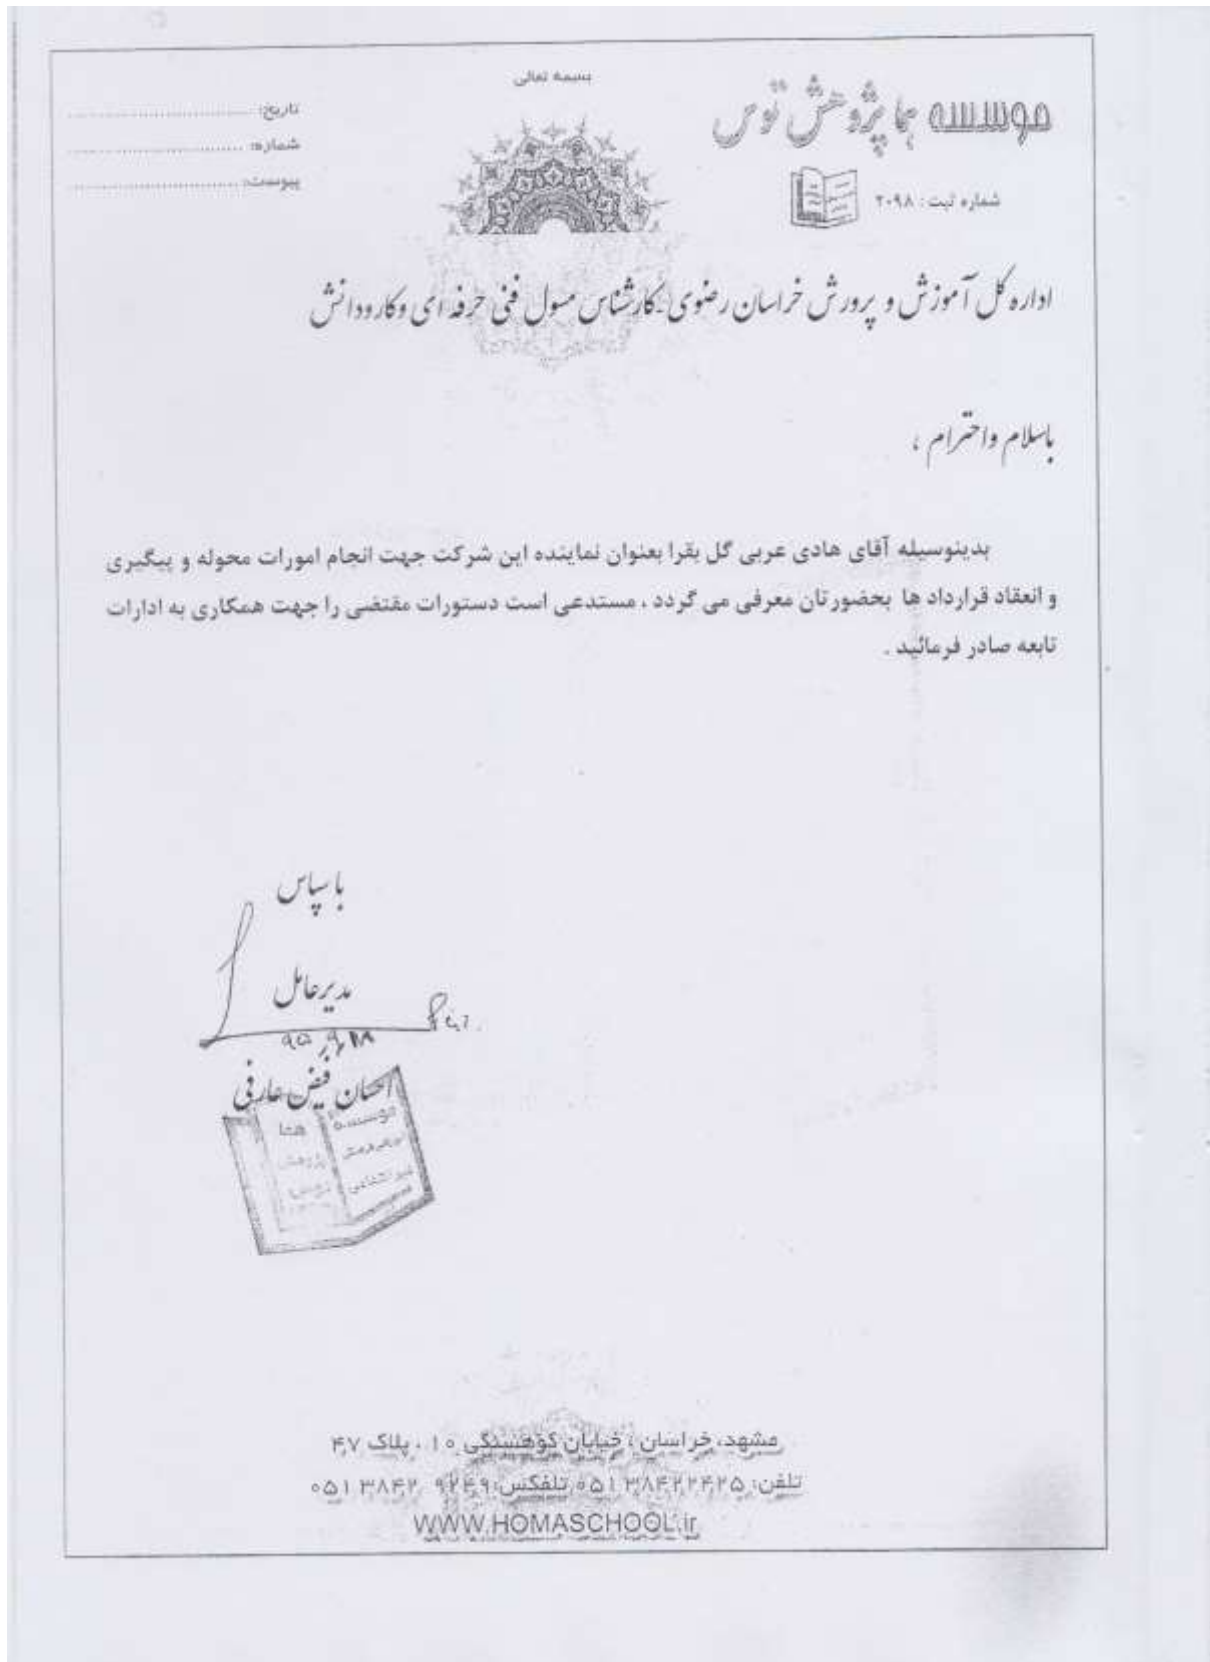 بسمه تعالی
موسسه هما پژوهش توس
شماره ثبت : ۲۰۹۸
تاریخ:
شماره:
پیوست:
اداره کل آموزش و پرورش خراسان رضوی-کارشناس مسول فنی حرفه ای وکارودانش
باسلام واحترام ،
بدینوسیله آقای هادی عربی گل بقرا بعنوان نماینده این شرکت جهت انجام امورات محوله و پیگیری
و انعقاد قرارداد ها بحضورتان معرفی می گردد ، مستدعی است دستورات مقتضی را جهت همکاری به ادارات
تابعه صادر فرمائید .
با سپاس
مدیرعامل
احسان فیض عارفی
موسسه هما
آموزش پژوهش
غیرانتفاعی توس
مشهد، خراسان ، خیابان کوهسنگی ۱۰ ، پلاک ۴۷
تلفن: ۰۵۱۳۸۴۲۲۴۲۵ تلفکس: ۹۲۴۹ ۰۵۱۳۸۴۲
WWW.HOMASCHOOL.ir